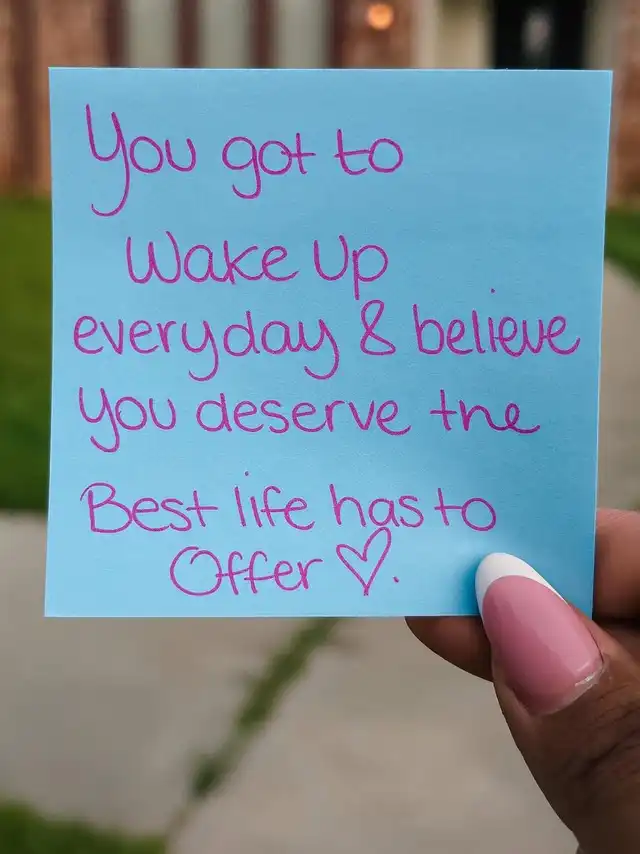 You got to
Wake Up
everyday & believe
you deserve the
Best life has to
Offer ♡.